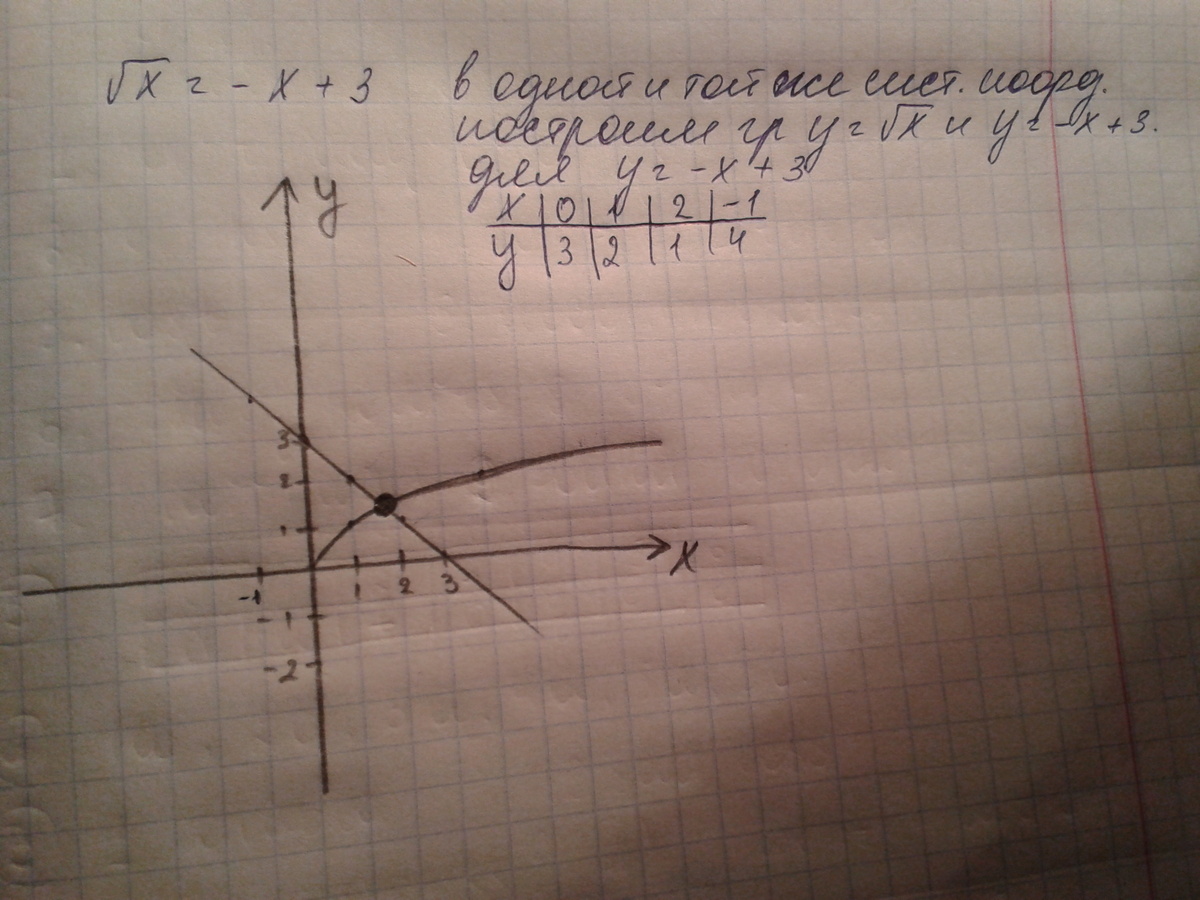 √x = - x + 3
в одной и той же сист. коорд.
построим гр y = √x и y = -x + 3.
для y = -x + 3
x | 0 | 1 | 2 | -1
y | 3 | 2 | 1 | 4
y
3
2
1
x
-1 1 2 3
-1
-2